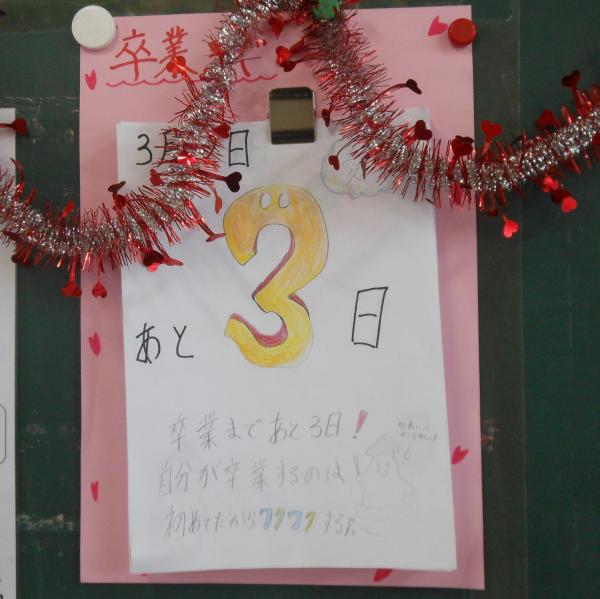 卒業
3月 日
あと 3 日
卒業まであと3日!
自分が卒業するのは
初めてだからワクワクするな〜